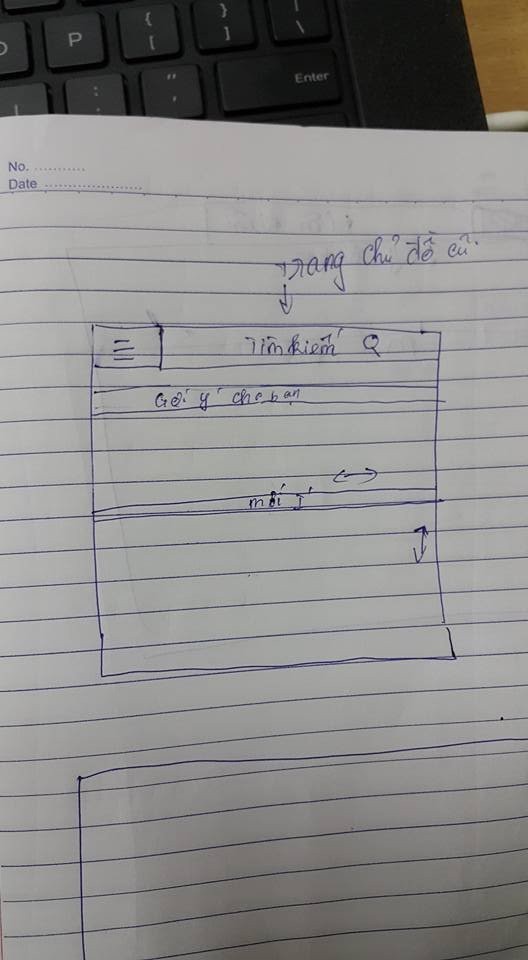 P
{
[
}
]
|
\
:
;
"
'
Enter
No. ...........
Date ........................
Trang chủ đồ cũ.
Tìm kiếm
Gợi ý cho bạn